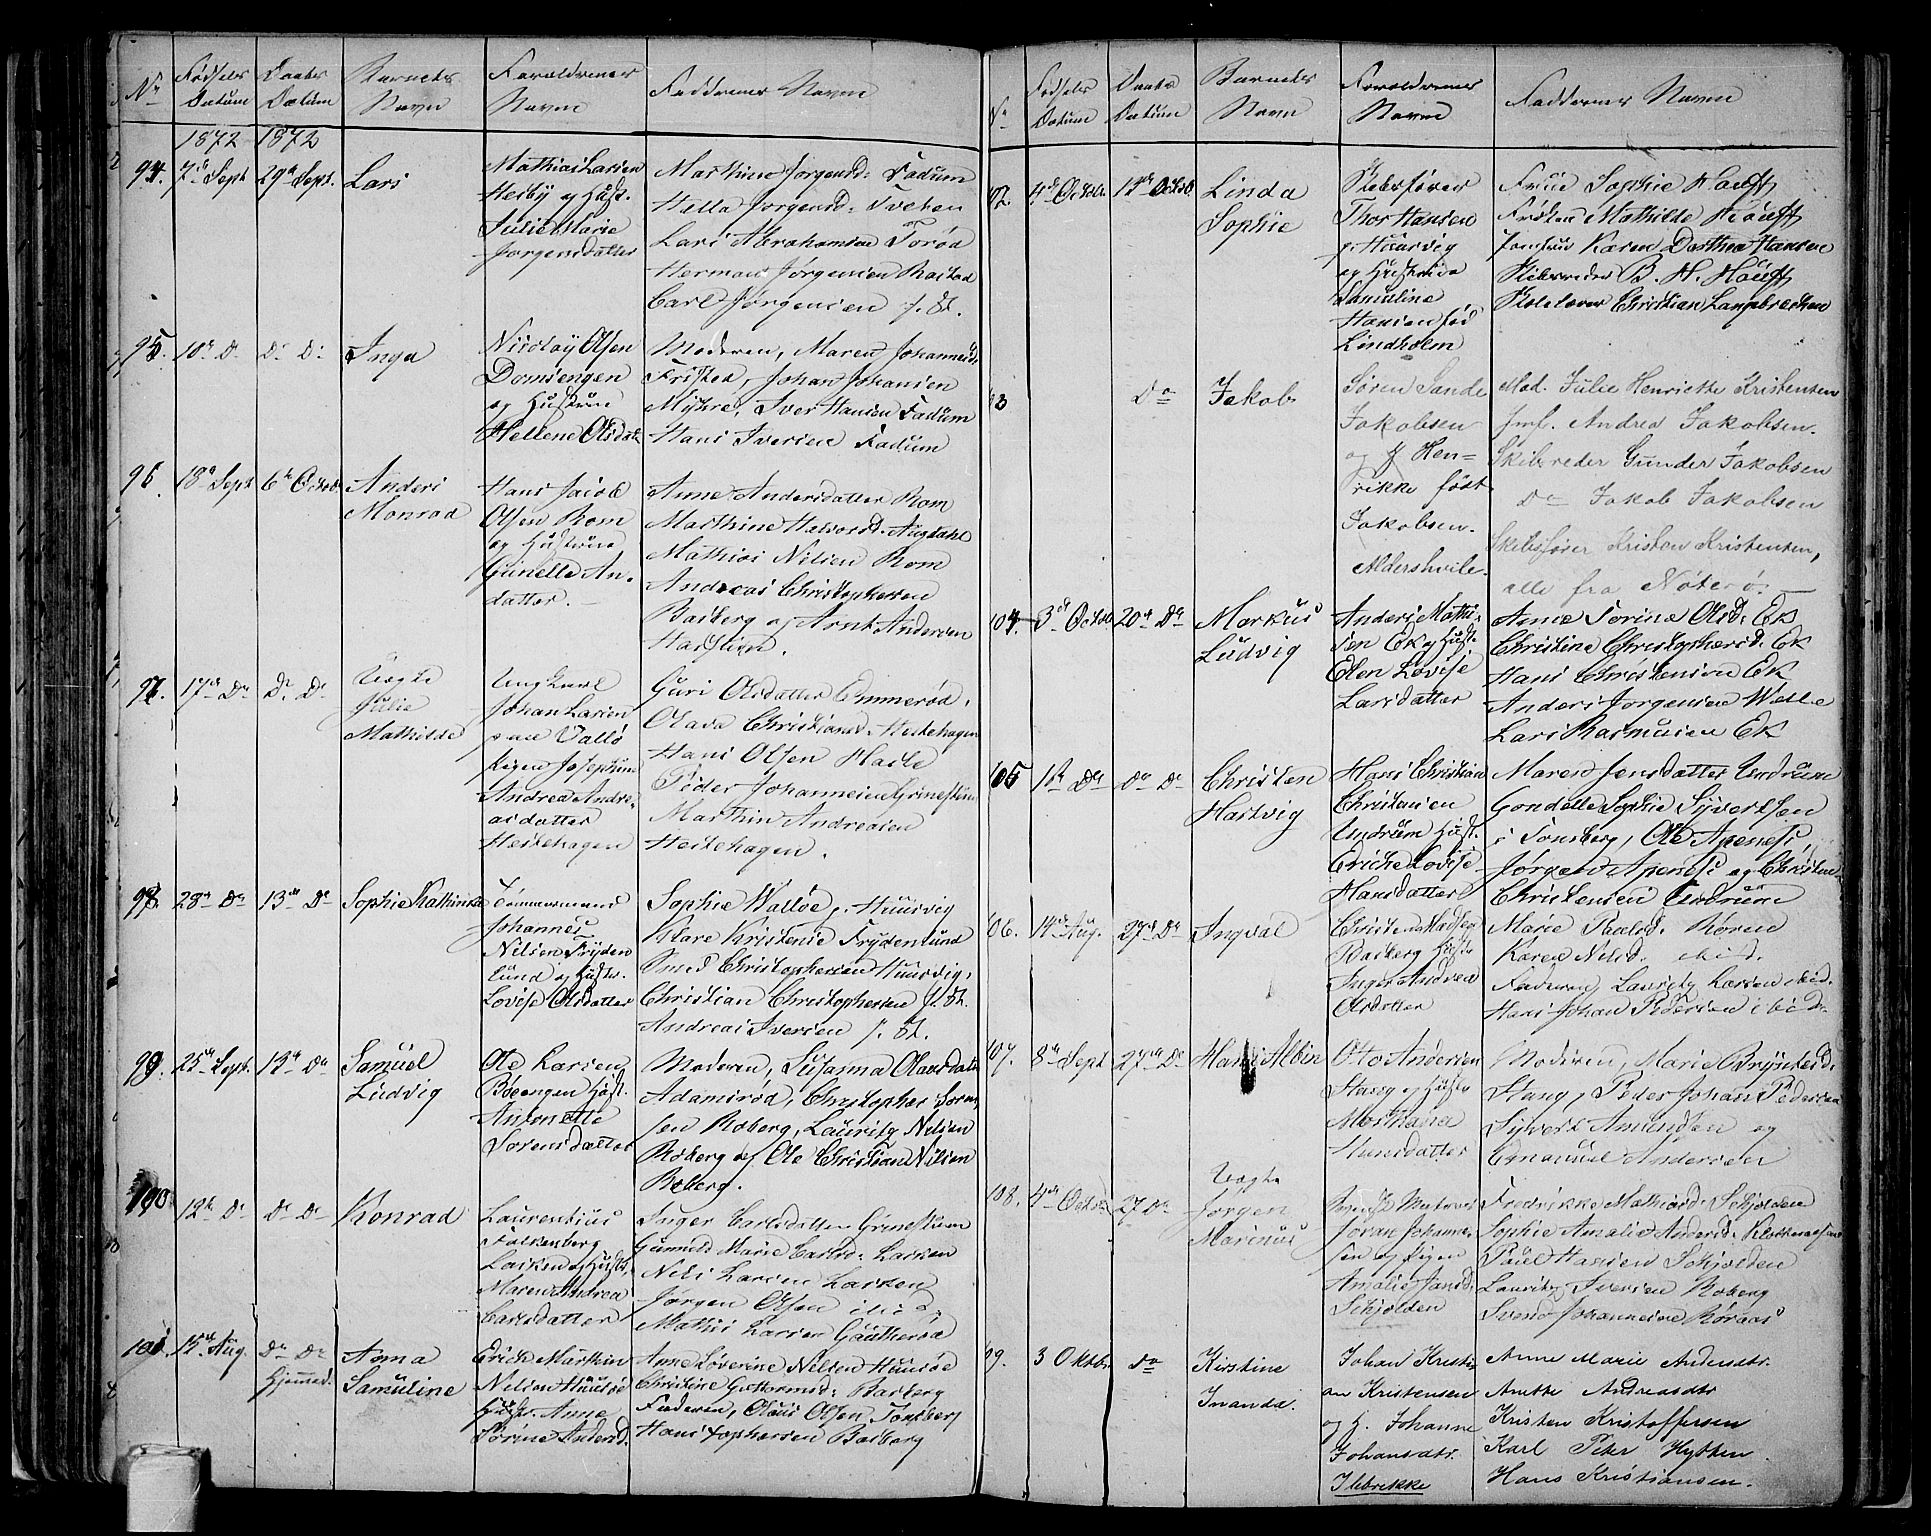 Nr Fødsels Datum Daabs Datum Barnets Navn Forældrenes Navne Faddernes Navne
1872 1872
94. 7de Sept 29de Sept. Lars
Mathias Larsen
Hesby og Hust.
Julie Marie
Jørgensdatter
Marthine Jørgensd: Fadum
Hella Jørgensd:
Lars Abrahamsen Torød
Herman Jørgensen Rastad
Carl Jørgensen
95. 10de Do Do Do Inga
Nicolay Olsen
Domsengen
og Hustrue
Hellene Olsdatr
Moderen, Maren Johannesd:
Fristad, Johan Johansen
Myhre, Iver Hansen Fadum
Hans Iversen Fadum
96. 18de Sept 6te Octob. Anders
Monrad
Hans Jacob
Olsen Rom
og Hustrue
Gunelle An-
datter.
Anne Andersdatter Rom
Marthine Halvorsd. Augdahl
Mathias Nilsen Rom
Andreas Christophersen
Basberg og Arnt Andersen
97. 17de Do Do Do Uægte
Julie
Mathilde
Ungkarl
Johan Larsen
paa Vallø
Pigen Josephine
Andrea Andre-
asdatter
Hestehagen
Guri Olsdatter Emmerød,
Olava Christiansd. Hestehagen
Hans Olsen Hasle
Peder Johannesen Grinestuen
Marthin Andreasen
Hestehagen.
98. 28de Do 13de Do Sophie Kathinka
Tømmermand
Johannes
Nilsen Fryden
lund og Hustr.
Lovise Olsdatter
Sophie Walløe p. Huusvig
Klare Kristensie Frydenlund
Smed Christophersen Huusvig,
Christian Christophersen
Andreas Iversen
99. 25de Sept. 13de Do Samuel
Ludvig
Ole Larsen
Bøengen Hust.
Antonette
Sorensdatter
Moderen, Susanna Olausdatr
Adamsrød, Christopher Soren-
sen Roberg, Lauritz Nilsen
Roberg og Ole Christian Nilsen
Roberg.
100. 12te Do Do Do Konrad
Laurentius
Falkenberg
Larken og Hustr,
Maren Andrea
Carlsdatter
Inger Carlsdatter Grinestuen
Gunnild Marie Carlsd. Larken
Nils Larsen Larken
Jørgen Olsen ibid.
Mathis Larsen Gautherød
101. 15de Aug. Do Do
Hjemmed.
Anna
Samuline
Erich Marthin
Nilsen Huusøe
Hustr. Anne
Sorine Andersd.
Anne Loverine Nilsen Huusøe
Christine Guttormsd: Basberg
Faderen, Olaus Olsen Tonsberg
Hans Tophersen Basberg
Nr Fødsels Datum Daabs Datum Barnets Navn Forældrenes Navne Faddernes Navne
102. 4de Octobr. 11de Octob. Linda
Sophie
Skibsfører
Thor Hansen
p. Huusvig
og Hustrue
Samuline
Hansen fød
Lindholm
Frue Sophie Hauff
Frøken Mathilde Hauff
Jomfru Karen Dorthea Hansen
Skibsreder B. H. Hauff
Christian Lambrechsen
03 Do Jakob
Søren Sande
Jakobsen
og H Hen-
rikke født
Jakobsen.
Aldershvile.
Mad. Julie Henriette Kristensen
Jmf. Andrea Jakobsen.
Skibsreder Gunder Jakobsen
Do Jakob Jakobsen
Skibsfører Kristen Kristensen,
alle fra Nøterø.
104. 3de Octob 20de Do Markus
Ludvig
Anders Mathi-
sen Ek og Hust.
Elen Lovise
Larsdatter
Anne Torine Olsd: Ek
Christine Christophersd: Ek
Hans Christensen Ek
Anders Jorgensen Walle
Lars Rasmusen Ek
105 1ste Do Do Do Christen
Hartvig
Hans Christian
Christensen
Undrum Hust.
Eriche Lovise
Hansdatter
Maren Jensdatter Undrum
Gondelle Sophie Syvertsen
i Tonsberg, Ole Apenes,
Jørgen Apenes og Christen
Christensen Undrum
106. 14de Aug. 27de Do Ingval
Christen Madsen
Basberg Hustr
Inger Andrea
Olsdatter
Marie Paulsd. Røren
Karen Nilsd. ibid.
Faderen, Lauritz Larsen ibid.
Hans Johan Pedersen ibid.
107. 8de Sept 27de Do Hans Albin
Otto Andersen
Stang og Hustr
Marthana
Hansdatter
Moderen, Marie Brynildsd:
Stang, Peder Johan Pedersen
Syvert Amundsen og
Emanuel Andersen
108. 4de Octob 27 Do Uægte
Jørgen
Marinus
Johan Johannes-
sen og Pigen
Amalie Jansd.
Schjolden
Fredrikke Mathiasd: Schjolden
Sophie Amalie Andersd:
Paul Hansen Schjolden
Lauritz Iversen Roberg
Svend Johannesen Røraas
09. 3 Oktbr. do Kirstine
Inanda.
Johan Kristi-
an Kristensen
og H. Johanne
Johansdtr.
Ilebrekke
Anne Marie Andersdtr.
Anette Andreasdtr
Kristen Kristoffersen
Karl Peter Hytten
Hans Kristiansen.